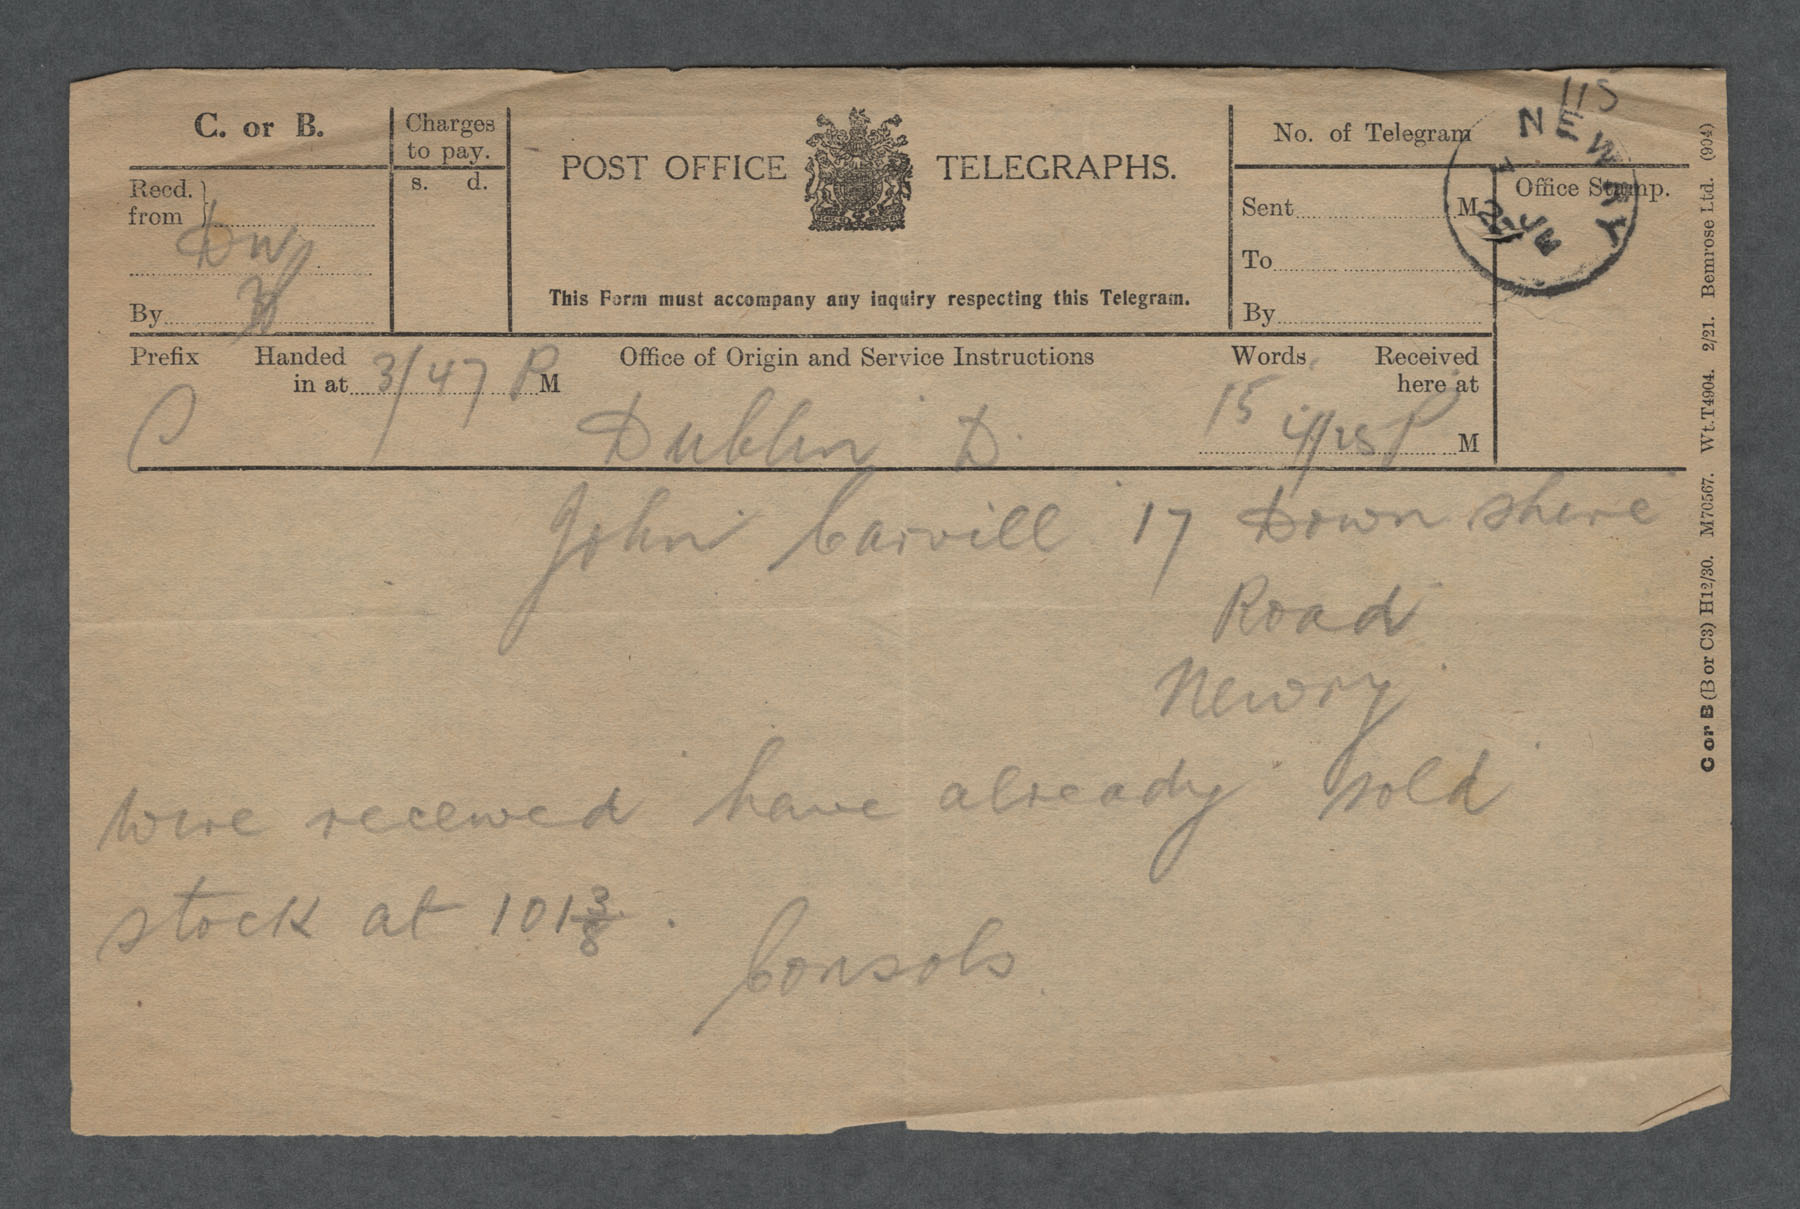 C. or B.
Charges
to pay.
s. d.
Recd.
from
DW
By
POST OFFICE TELEGRAPHS.
This Form must accompany any inquiry respecting this Telegram.
115
No. of Telegram
Sent M
To
By
Office Stamp.
NEWRY
Prefix Handed
in at 3/47 P M
Office of Origin and Service Instructions
Words Received
here at
C Dublin D 15 4/25 P M
John Carvill 17 Down shire
Road
Newry
Wire received have already sold
stock at 101 3/8 .
Consols
C or B (B or C3) H12/30. M70567. Wt.T4904. 2/21. Bemrose Ltd. (904)